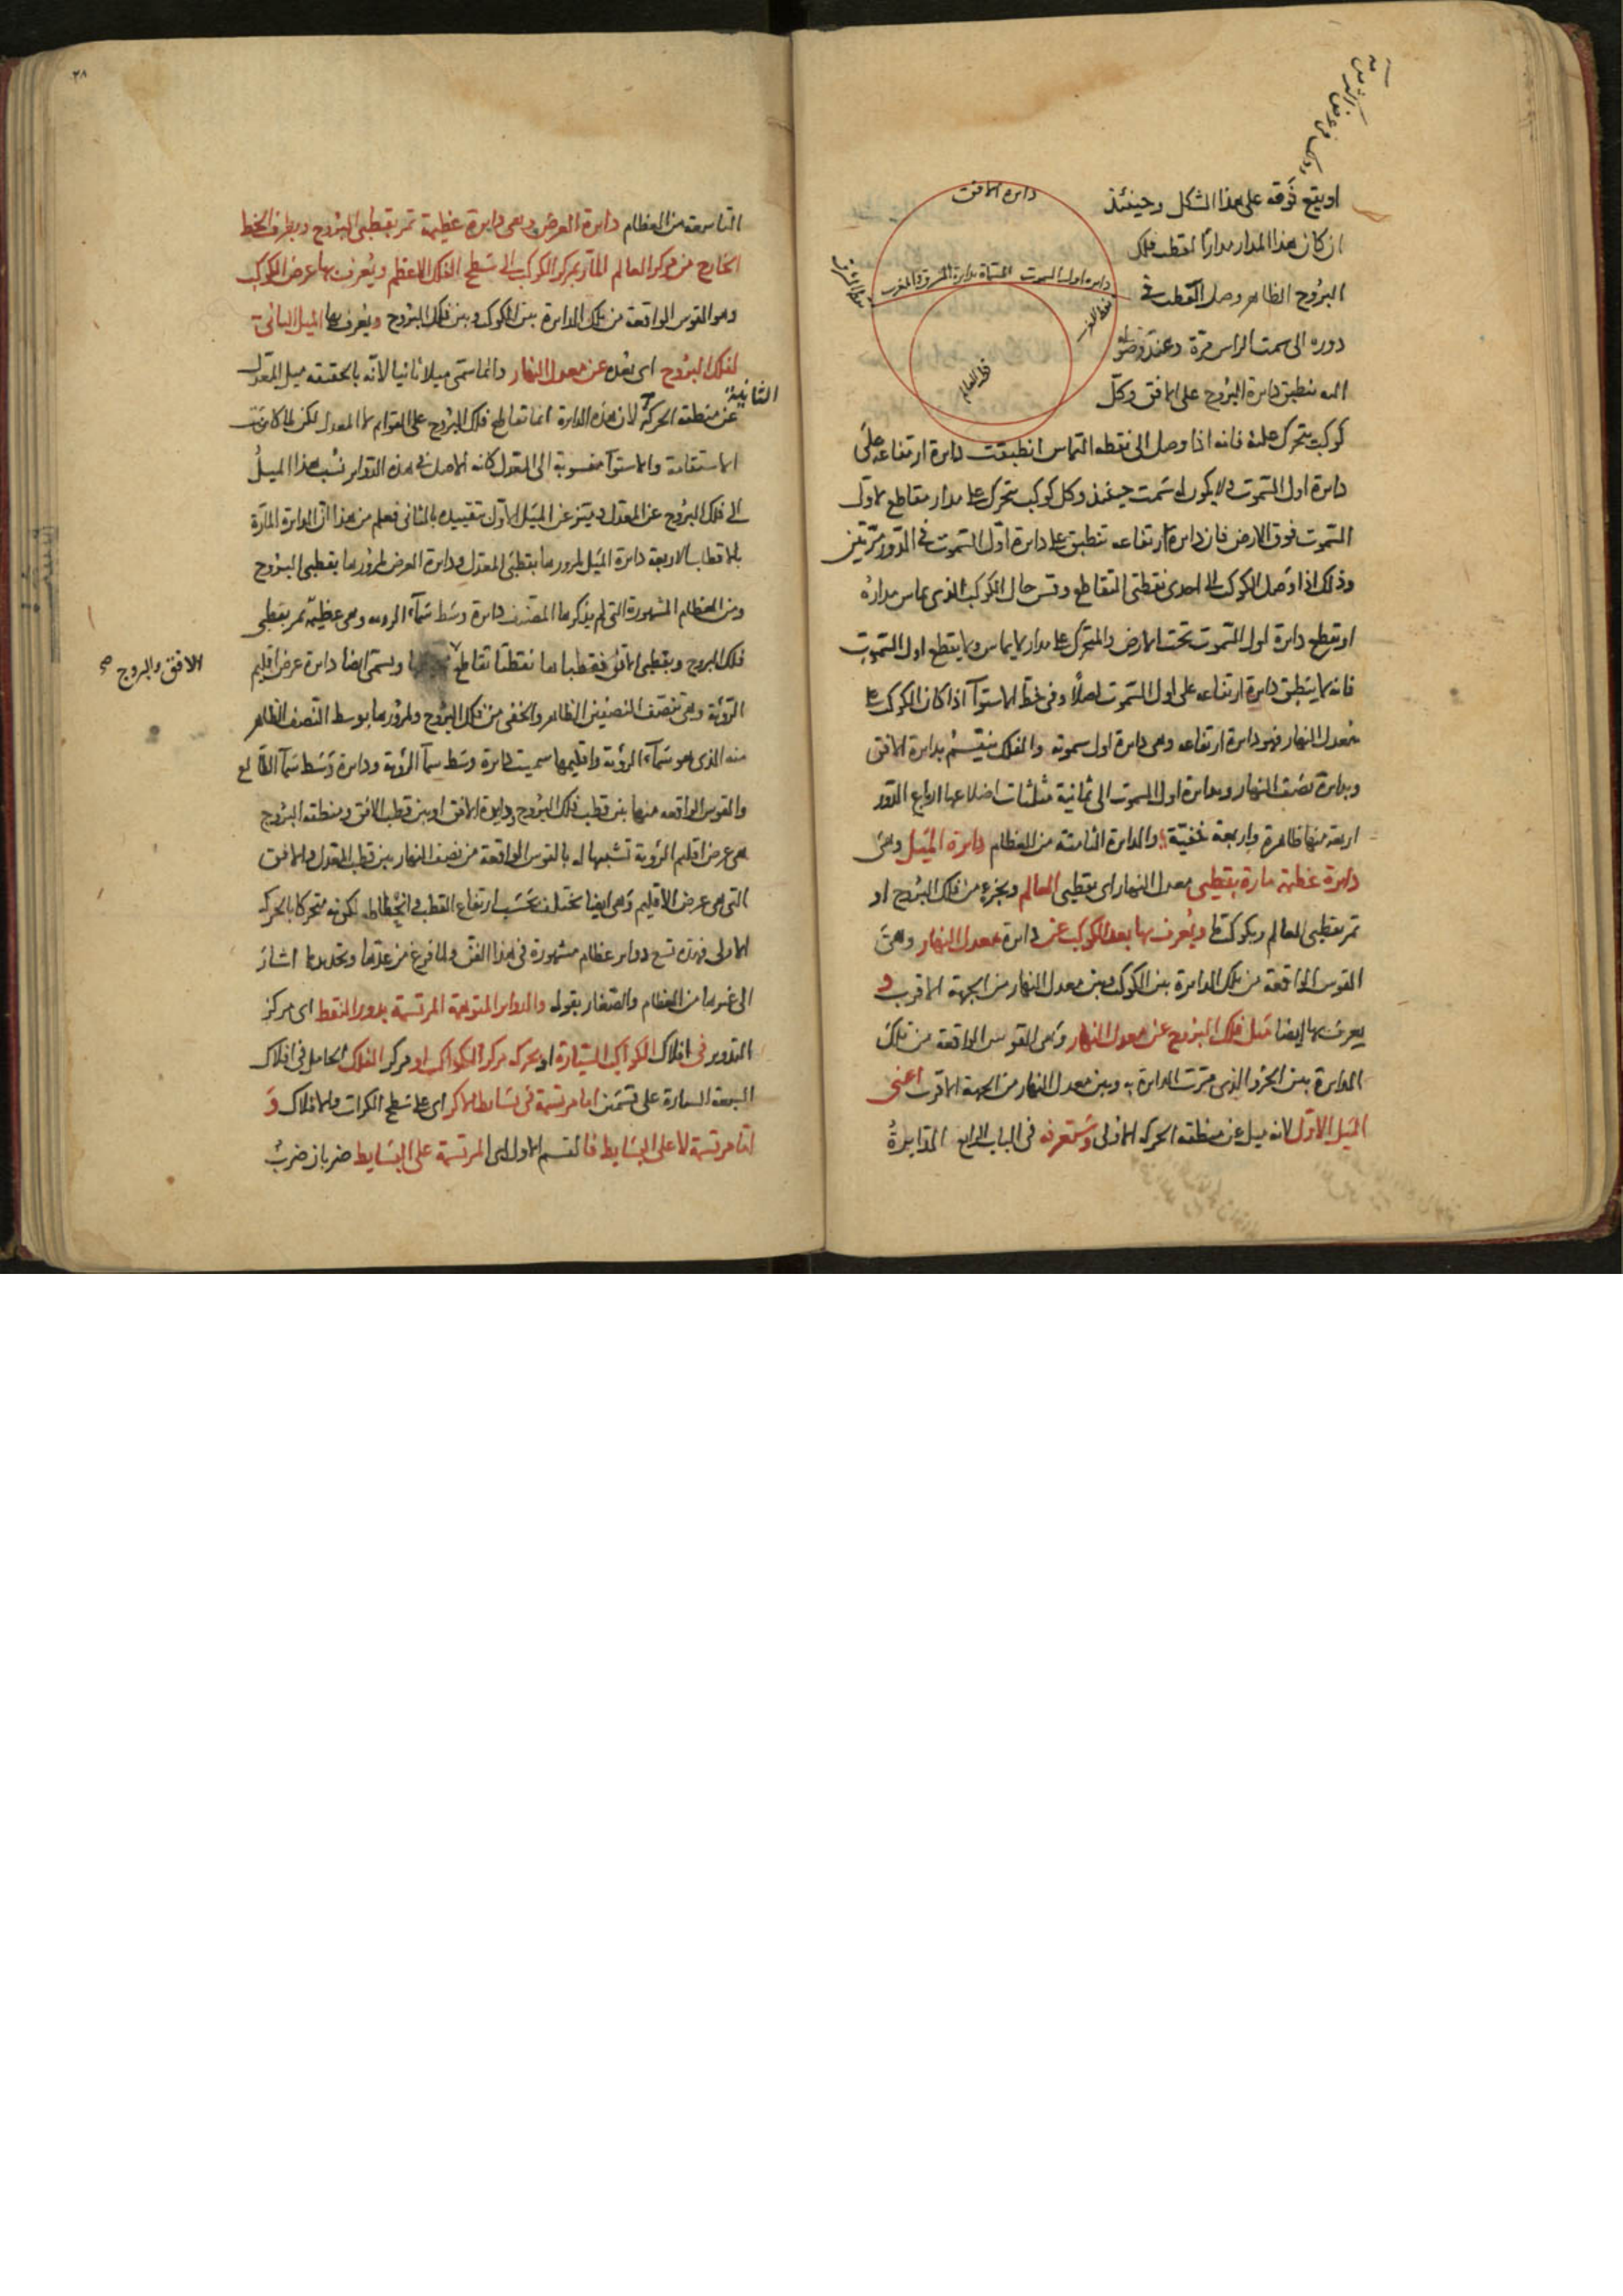 دايرة الافق
دايرة اول السموت المسماة بدايرة المشرق والمغرب
قطب العالم
او يقع فوقه على هذا الشكل وحينئذ
ان كان هذا المدار مدارا لقطب فلك
البروج الظاهر وصل القطب في
دوره الى سمت الراس مرة وعند وصوله
اليه ينطبق دايرة البروج على الافق وكل
كوكب يتحرك عليه فانه اذا وصل الى نقطة التماس انطبقت دايرة ارتفاعه على
دايرة اول السموت ولا يكون له سمت حينئذ وكل كوكب يتحرك على مدار مقاطع لاول
السموت فوق الارض فان دايرة ارتفاعه تنطبق على دايرة اول السموت في الدور مرتين
وذلك اذا وصل الكوكب الى احدى نقطتي التقاطع وقس حال الكوكب الذي يماس مداره
او يقطع دايرة اول السموت تحت الارض والمتحرك على مدار لا يماس ولا يقطع اول السموت
فانه لا ينطبق دايرة ارتفاعه على اول السموت اصلا وفي خط الاستوآ اذا كان الكوكب على
معدل النهار فهو دايرة ارتفاعه وهي دايرة اول سموته والفلك ينقسم بدايرة الافق
وبدايرة نصف النهار وبدايرة اول السموت الى ثمانية مثلثات اضلاعها ارباع الدور
اربعة منها ظاهرة واربعة خفية والدايرة الثامنة من العظام دايرة الميل وهي
دايرة عظيمة مارة بقطبي معدل النهار اى بقطبي العالم وبجزء من فلك البروج او
تمر بقطبي العالم وبكوكب ما ويعرف بها بعد الكوكب عن دايرة معدل النهار وهي
القوس الواقعة من تلك الدايرة بين الكوكب وبين معدل النهار من الجهة الاقرب و
يعرف بها ايضا ميل فلك البروج عن معدل النهار وهي القوس الواقعة من تلك
الدايرة بين الجزء الذي مرت الدايرة به وبين معدل النهار من الجهة الاقرب اعني
الميل الاول لانه ميل عن منطقة الحركة الاولى وستعرفه في الباب الرابع الدايرة
٢٨
التاسعة من العظام دايرة العرض وهي دايرة عظيمة تمر بقطبي البروج وبطرف الخط
الخارج من مركز العالم المار بمركز الكوكب الى سطح الفلك الاعظم ويعرف بها عرض الكوكب
وهو القوس الواقعة من تلك الدايرة بين الكوكب وبين فلك البروج ويعرف بها الميل الثاني
لفلك البروج اى بعده عن معدل النهار وانما سمي ميلا ثانيا لانه بالحقيقة ميل المعدل
الثانية
عن منطقة الحركة لان هذه الدايرة انما تقاطع فلك البروج على القوايم لا المعدل لكن لما كانت
الاستقامة والاستوآ منسوبة الى المعدل كانه الاصل في هذه الدواير نسب هذا الميل
الى فلك البروج عن المعدل وميز عن الميل الاول بتقييده بالثاني فعلم من هذا ان الدايرة المارة
بالاقطاب الاربعة دايرة الميل لمرورها بقطبي المعدل ودايرة العرض لمرورها بقطبي البروج
ومن العظام المشهورة التي لم يذكرها المصنف دايرة وسط سمآء الروية وهي عظيمة تمر بقطبي
فلك البروج وبقطبي الافق فقطباها نقطتا تقاطع ويسمى ايضا دايرة عرض اقليم
الافق والبروج صح
الروية وهي تنصف النصفين الظاهر والخفي من فلك البروج ولمرورها بوسط النصف الظاهر
منه الذي هو سمآء الروية واقليمها سميت دايرة وسط سمآ الروية ودايرة وسط سمآ الطالع
والقوس الواقعة منها بين قطب فلك البروج ودايرة الافق او بين قطب الافق ومنطقة البروج
هي عرض اقليم الروية تشبيها له بالقوس الواقعة من نصف النهار بين قطب المعدل والافق
التي هي عرض الاقليم وهي ايضا تختلف بحسب ارتفاع القطب وانحطاطه لكونه متحركا بالحركة
الاولى فهذه تسع دواير عظام مشهورة في هذا الفن ولما فرغ من عدها وتحديدها اشار
الى غيرها من العظام والصغار بقوله والدواير المتوهمة المرتسمة بدور النقط اى مركز
التدوير في افلاك الكواكب السيارة او بحركة مركز الكواكب او مركز الفلك الحامل في افلاك
السبعة السيارة على قسمين اما مرتسمة في بسايط الاكر اى على سطح الكرات والافلاك و
اما مرتسمة لا على البسايط فالقسم الاول اى المرتسمة على البسايط ضربان ضرب